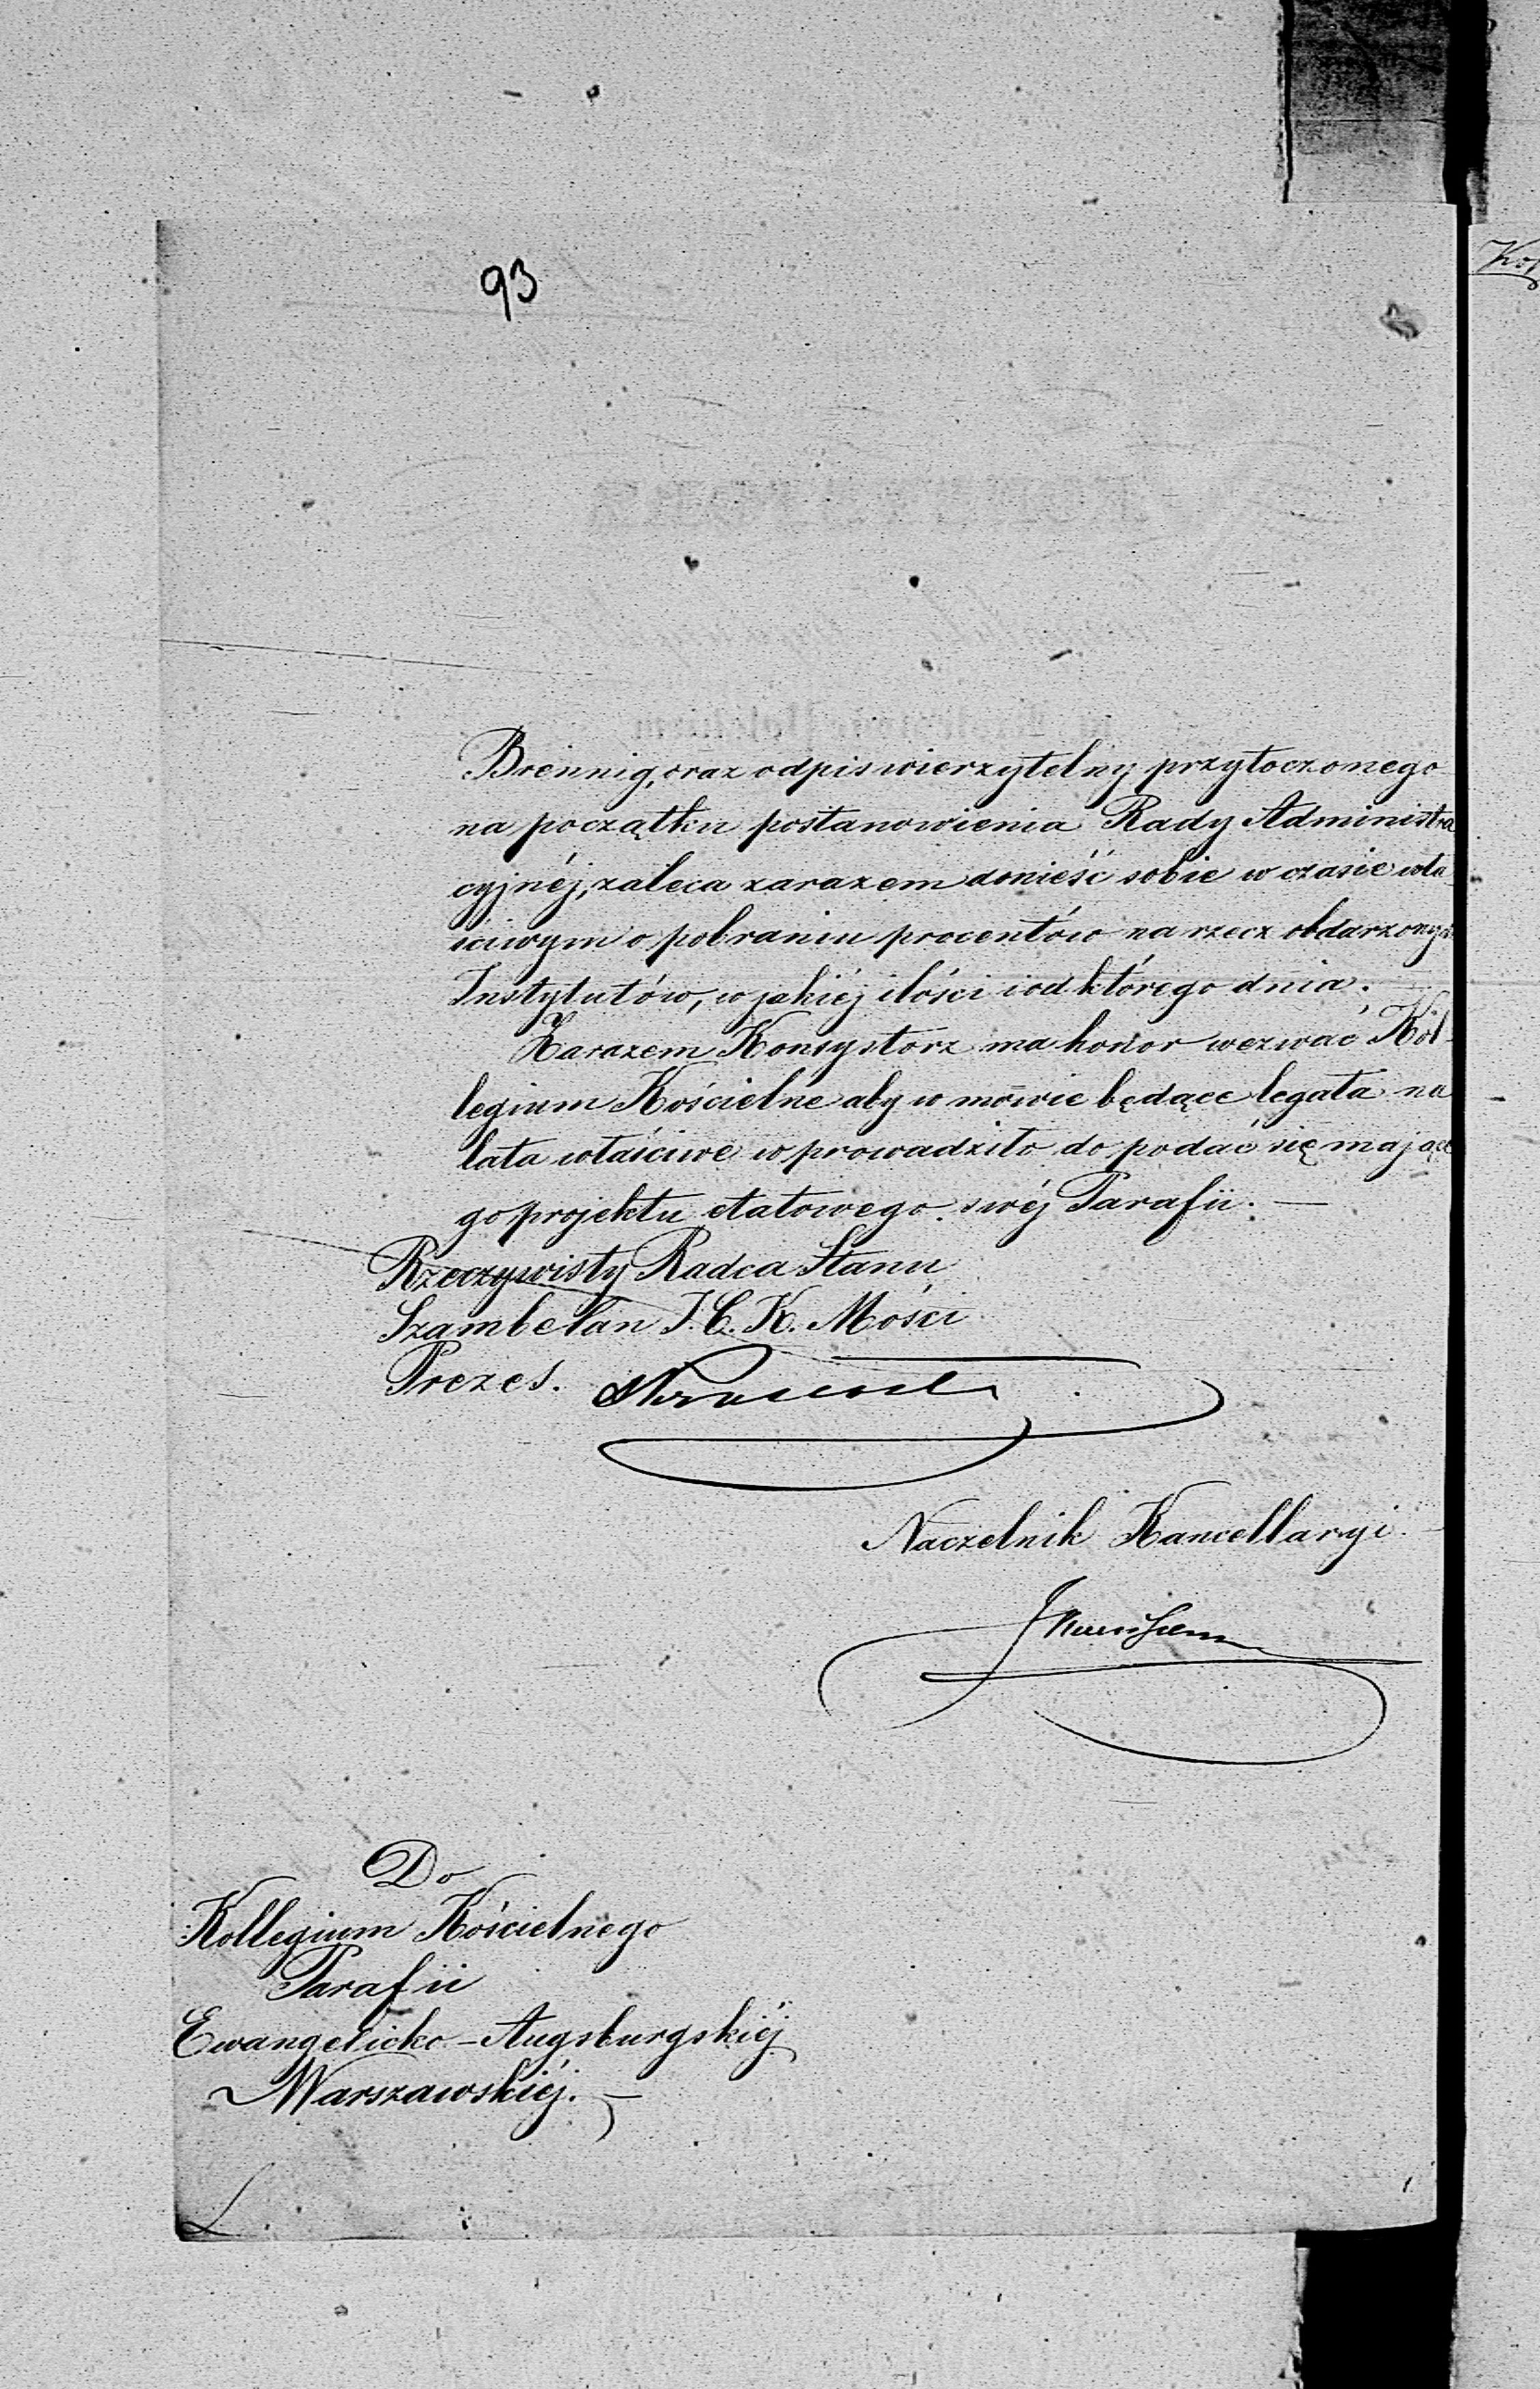 93
Brennig, oraz odpis wierzytelny przytoczonego
na początku postanowienia Rady Administra
cyjnéj, zaleca zarazem donieść sobie w czasie wła-
ściwym o pobraniu procentów na rzecz obdarzonych
Instytutów, w jakiéj ilości i od którego dnia.
Zarazem Konsystorz ma honor wezwać Kol-
legium Kościelne aby w mowie będące legata na
lata właściwe wprowadziło do podać się mające
go projektu etatowego swéj Parafii. —
Rzeczywisty Radca Stanu
Szambelan J. C. K. Mości
Prezes.
Naczelnik Kancellaryi.
Do
Kollegium Kościelnego
Parafii
Ewangelicko-Augsburgskiéj
Warszawskiéj. —